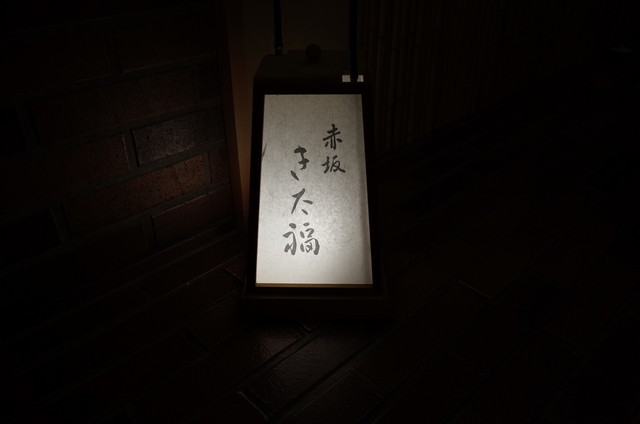 赤坂
きた福